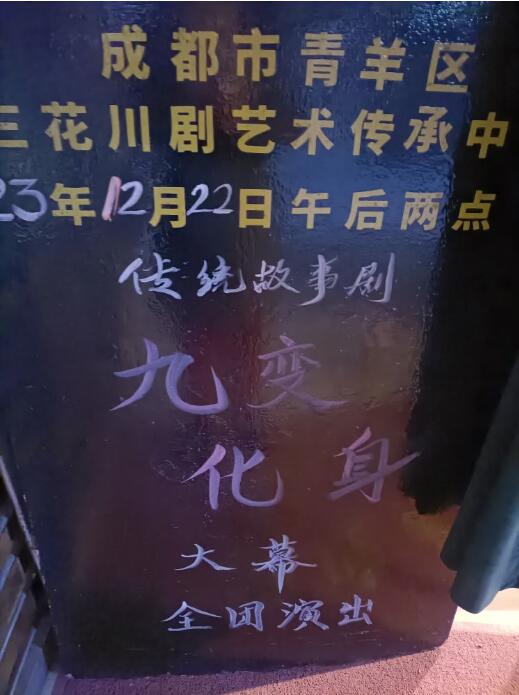 成都市青羊区
三花川剧艺术传承中
23年12月22日午后两点
传统故事剧
九变
化身
大幕
全团演出